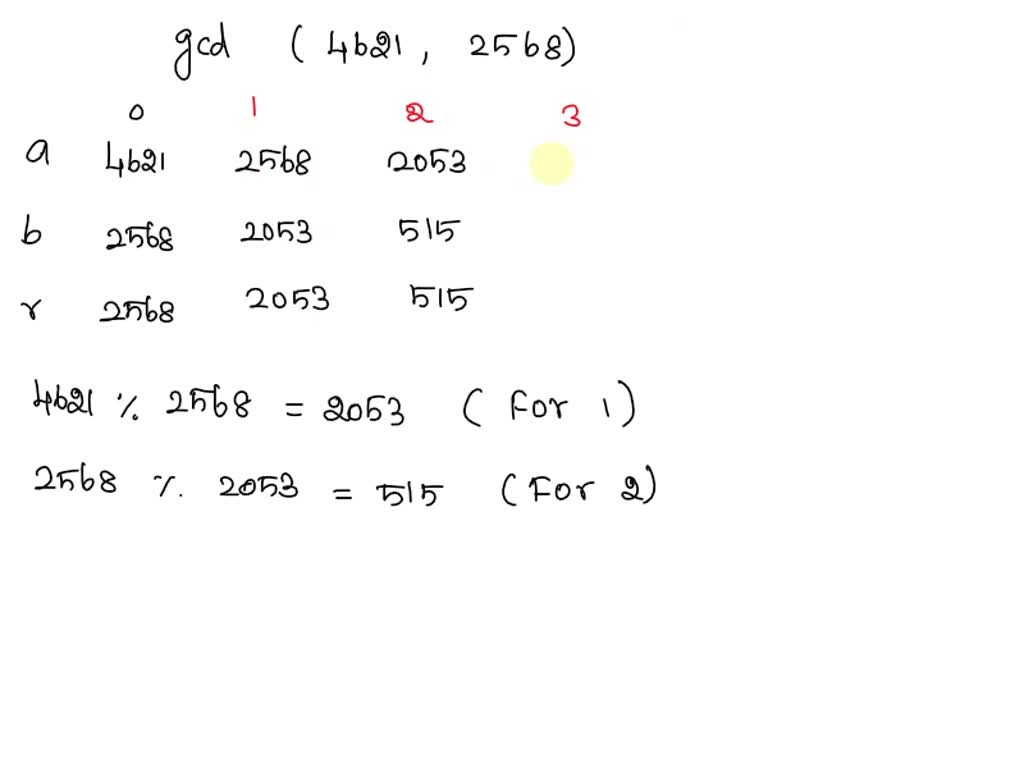 gcd ( 4621, 2568)
0 1 2 3
a 4621 2568 2053
b 2568 2053 515
r 2568 2053 515
4621 % 2568 = 2053 ( For 1)
2568 %. 2053 = 515 (For 2)